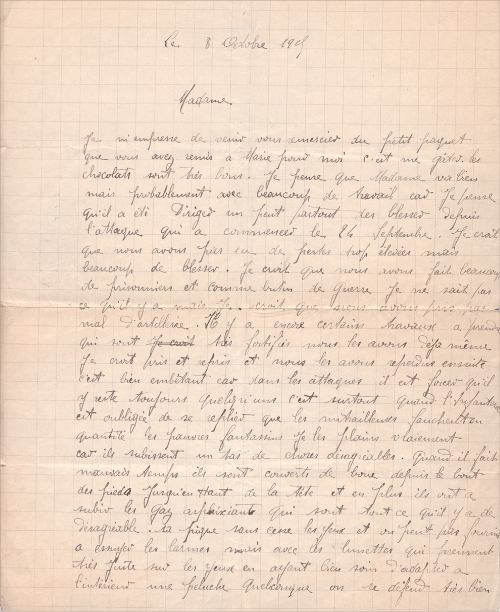 Le 8 Octobre 191
Madame.
Je m'empresse de venir vous remercier du petit paquet
que vous avez remis a Marie pour moi c'est me gater les
chocolats sont très bons. Je pense que Madame va bien
mais probablement avec beaucoup de travail car Je pense
qu'il a été Diriger un peut partout des blesser depuis
l'attaque qui a commencer le 24 Septembre. Je croit
que nous avons pas eu de pertes trop élevées mais
beaucoup de blesser. Je croit que nous avons fait beaucoup
de prisonniers et comme butin de Guerre Je ne sait pas
ce qu'il y a mais Je croit que nous avons pris pas
mal d'artillerie. Il y a encore certains travaux a prendre
qui sont Je croit très fortifiés nous les avons Déja même
Je croit pris et repris et nous les avons reperdus ensuite
c'est bien embêtant car dans les attaques il est forcer qu'il
y reste toujours quelqu'uns c'est surtout quand l'Infanterie
est oubligée de se replier que les mitrailleuses fauchent en
quantité les pauvres fantassins Je les plains vraiement
car ils subissent un tas de choses désagréables. Quand il fait
mauvais temps ils sont couverts de boue depuis le bout
des pieds Jusqu'en Haut de la tête et en plus ils ont a
subir les Gaz asphixiant qui sont tout ce qu'il y a de
désagréable. sa pique sans cesse les yeux et on peut pas fournir
a essuyer les larmes mais avec des lunettes qui prennent
très juste sur les yeux en ayant bien soin d'adapter a
l'intérieur une peluche quelconque on se défend très bien